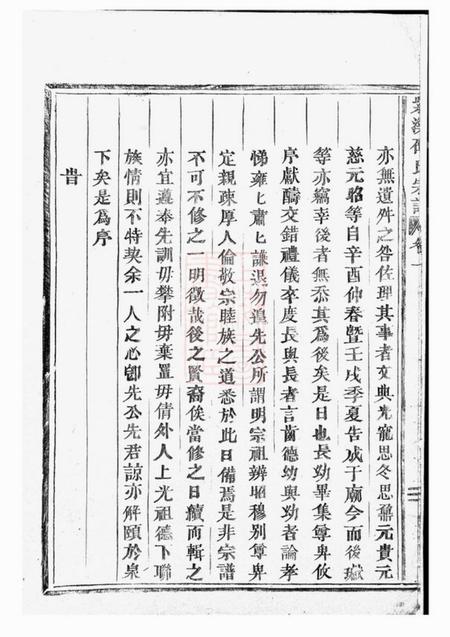 亦無遺舛之咎佐理其事者文典光寵思冬思鼐元貴元
慈元昭等自辛酉仲春暨壬戌季夏告成于廟今而後瓛
等亦竊幸後者無忝其為後矣是日也長幼畢集尊卑攸
序獻酬交錯禮儀卒度長與長者言齒德幼與幼者論孝
悌雍匕肅匕謙退勿遑先公所謂明宗祖辨昭穆別尊卑
定親疎厚人倫敬宗睦族之道悉於此日備焉是非宗譜
不可不修之一明徵哉後之賢裔俟當修之日續而輯之
亦宜遵奉先訓毋攀附毋棄置毋倩外人上光祖德下聯
族情則不特契余一人之心卽先公先君諒亦解頤於泉
下矣是為序
旹